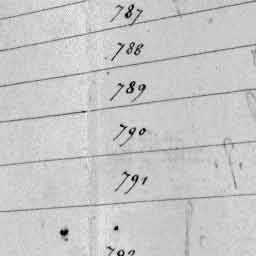 787
788
789
790
791
792